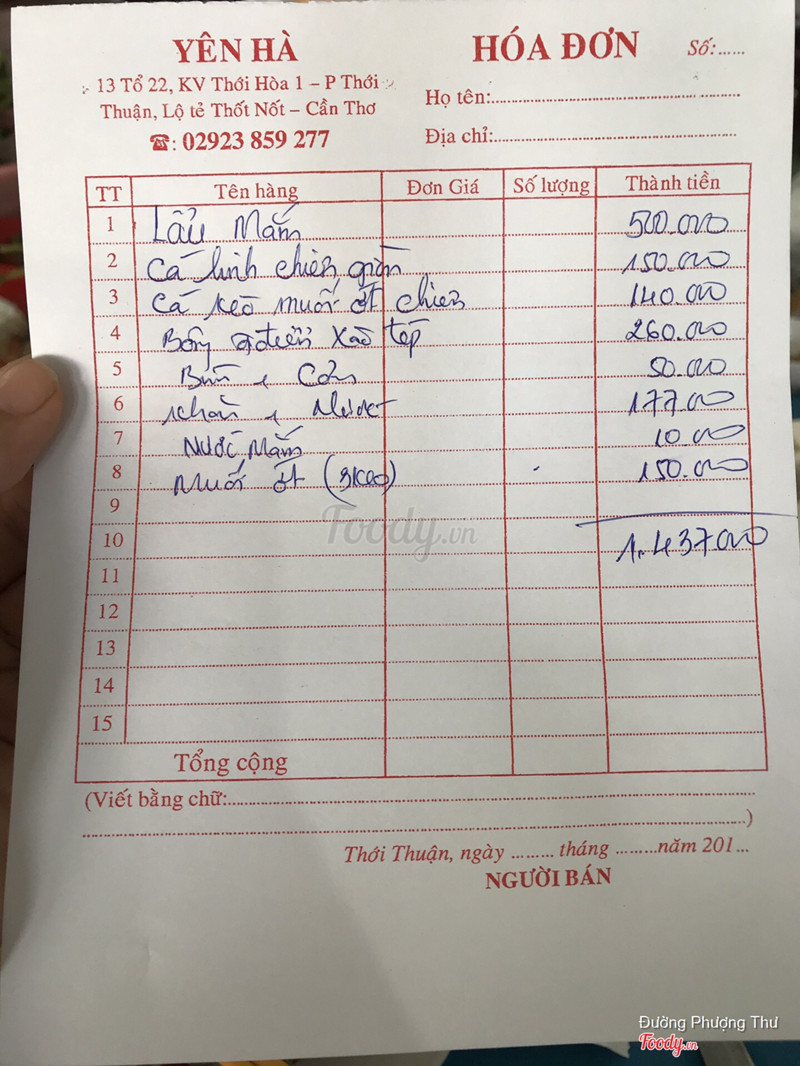 YÊN HÀ
13 Tổ 22, KV Thới Hòa 1 – P Thới
Thuận, Lộ tẻ Thốt Nốt – Cần Thơ
☎: 02923 859 277
HÓA ĐƠN
Số:......
Họ tên:
Địa chỉ:
TT Tên hàng Đơn Giá Số lượng Thành tiền
1 Lẩu Mắm 500.000
2 Cá linh chiên giòn 150.000
3 Cá kèo muối ớt chiên 140.000
4 Bông điên xào tép 260.000
5 Bún + Cơm 50.000
6 Khăn + Nước 177.000
7 Nước Mắm 10.000
8 Muối ớt (3keo) 150.000
9
10 1.437000
11
12
13
14
15
Tổng cộng
(Viết bằng chữ:
)
Thới Thuận, ngày ......... tháng .........năm 201...
NGƯỜI BÁN
Foody.vn
Đường Phượng Thư
Foody.vn